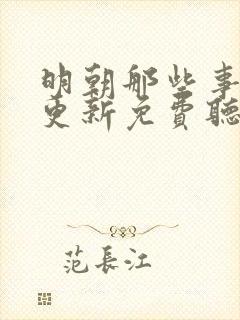 明朝那些事
更新免費聽
范長江